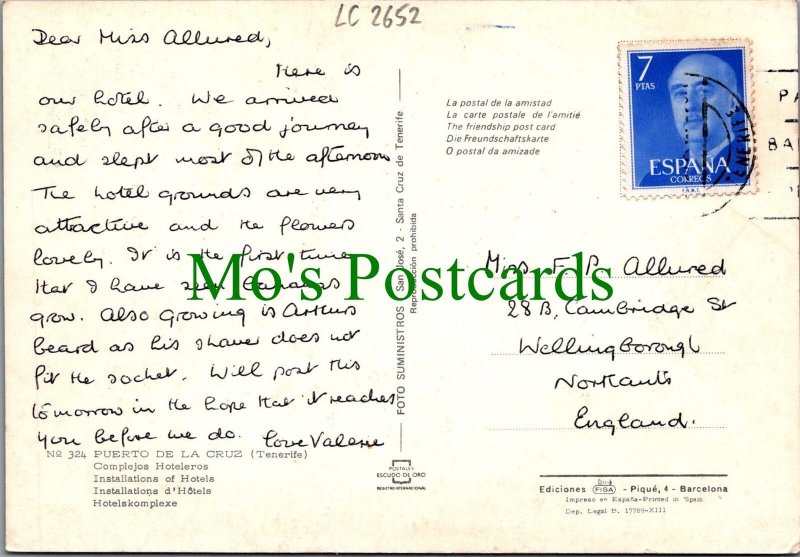 LC 2652
Dear Miss Allured,
Here is
our hotel. We arrived
safely after a good journey
and slept most of the afternoon
The hotel grounds are very
attractive and the flowers
lovely. It is the first time
that I have seen bananas
grow. Also growing is Arthurs
beard as his shaver does not
fit the socket. Will post this
tomorrow in the hope that it reaches
you before we do. Love Valerie
Nº 324 PUERTO DE LA CRUZ (Tenerife)
Complejos Hoteleros
Installations of Hotels
Installations d'Hôtels
Hotelskomplexe
FOTO SUMINISTROS San José, 2 - Santa Cruz de Tenerife
Reproducción prohibida
POSTALES
ESCUDO DE ORO
REGISTRO INTERNACIONAL
La postal de la amistad
La carte postale de l'amitié
The friendship post card
Die Freundschaftskarte
O postal da amizade
7
PTAS
ESPAÑA
CORREOS
F.N.M.T.
PA
BA
Miss F.B. Allured
28B, Cambridge St
Wellingborough
Northants
England.
Ediciones FISA - Piqué, 4 - Barcelona
Impreso en España-Printed in Spain
Dep. Legal B. 17789-XIII
Mo's Postcards